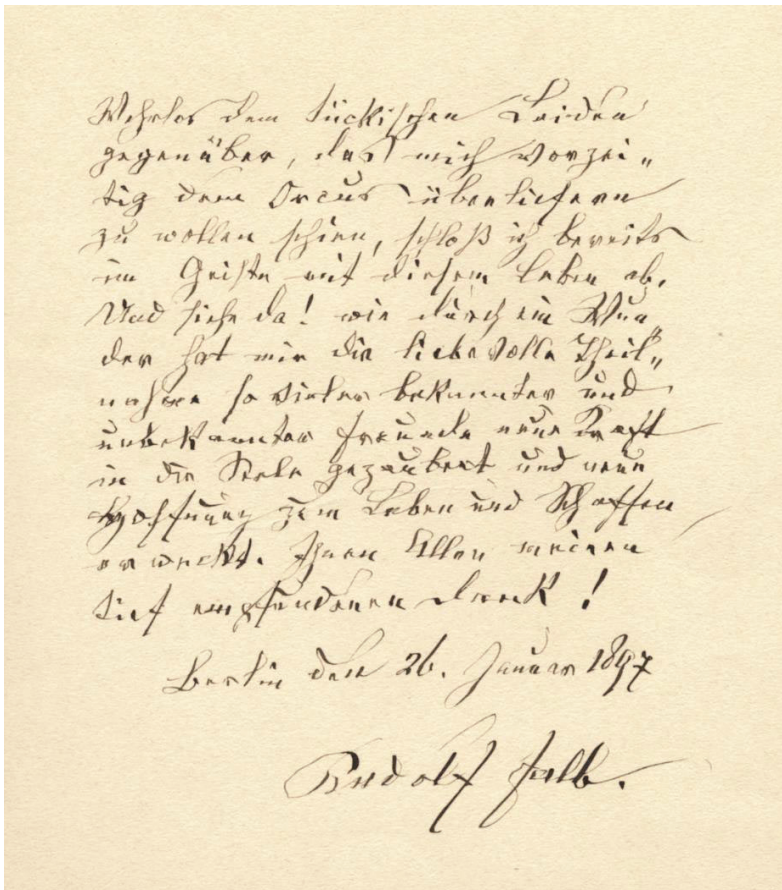 Wehrlos dem tückischen Leiden
gegenüber, das mich vorzei„
tig dem Orcus überliefern
zu wollen schien, schloß ich bereits
im Geiste mit diesem Leben ab.
Und siehe da! wie durch ein Wun„
der hat mir die liebevolle Theil„
nahme so vieler bekannter und
unbekannter Freunde neue Kraft
in die Seele gezaubert und neue
Hoffnung zum Leben und Schaffen
erweckt. Ihnen Allen meinen
tief empfundenen Dank!
Berlin den 26. Januar 1897
Rudolf Falb.